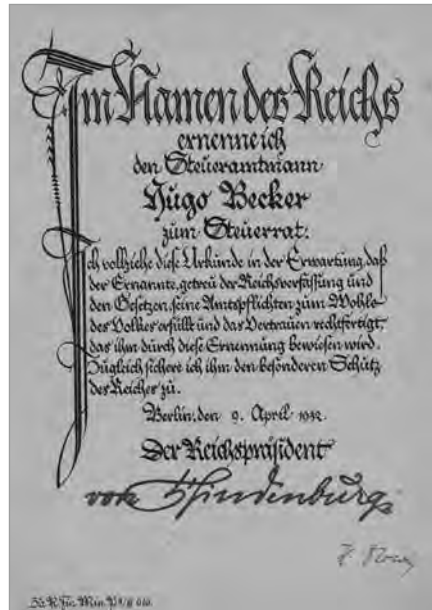 Im Namen des Reichs
ernenne ich
den Steueramtmann
Hugo Becker
zum Steuerrat.
Ich vollziehe diese Urkunde in der Erwartung, daß
der Ernannte, getreu der Reichsverfassung und
den Gesetzen, seine Amtspflichten zum Wohle
des Volkes erfüllt und das Vertrauen rechtfertigt,
das ihm durch diese Ernennung bewiesen wird.
Zugleich sichere ich ihm den besonderen Schutz
des Reiches zu.
Berlin, den 9. April 1932
Der Reichspräsident
von Hindenburg